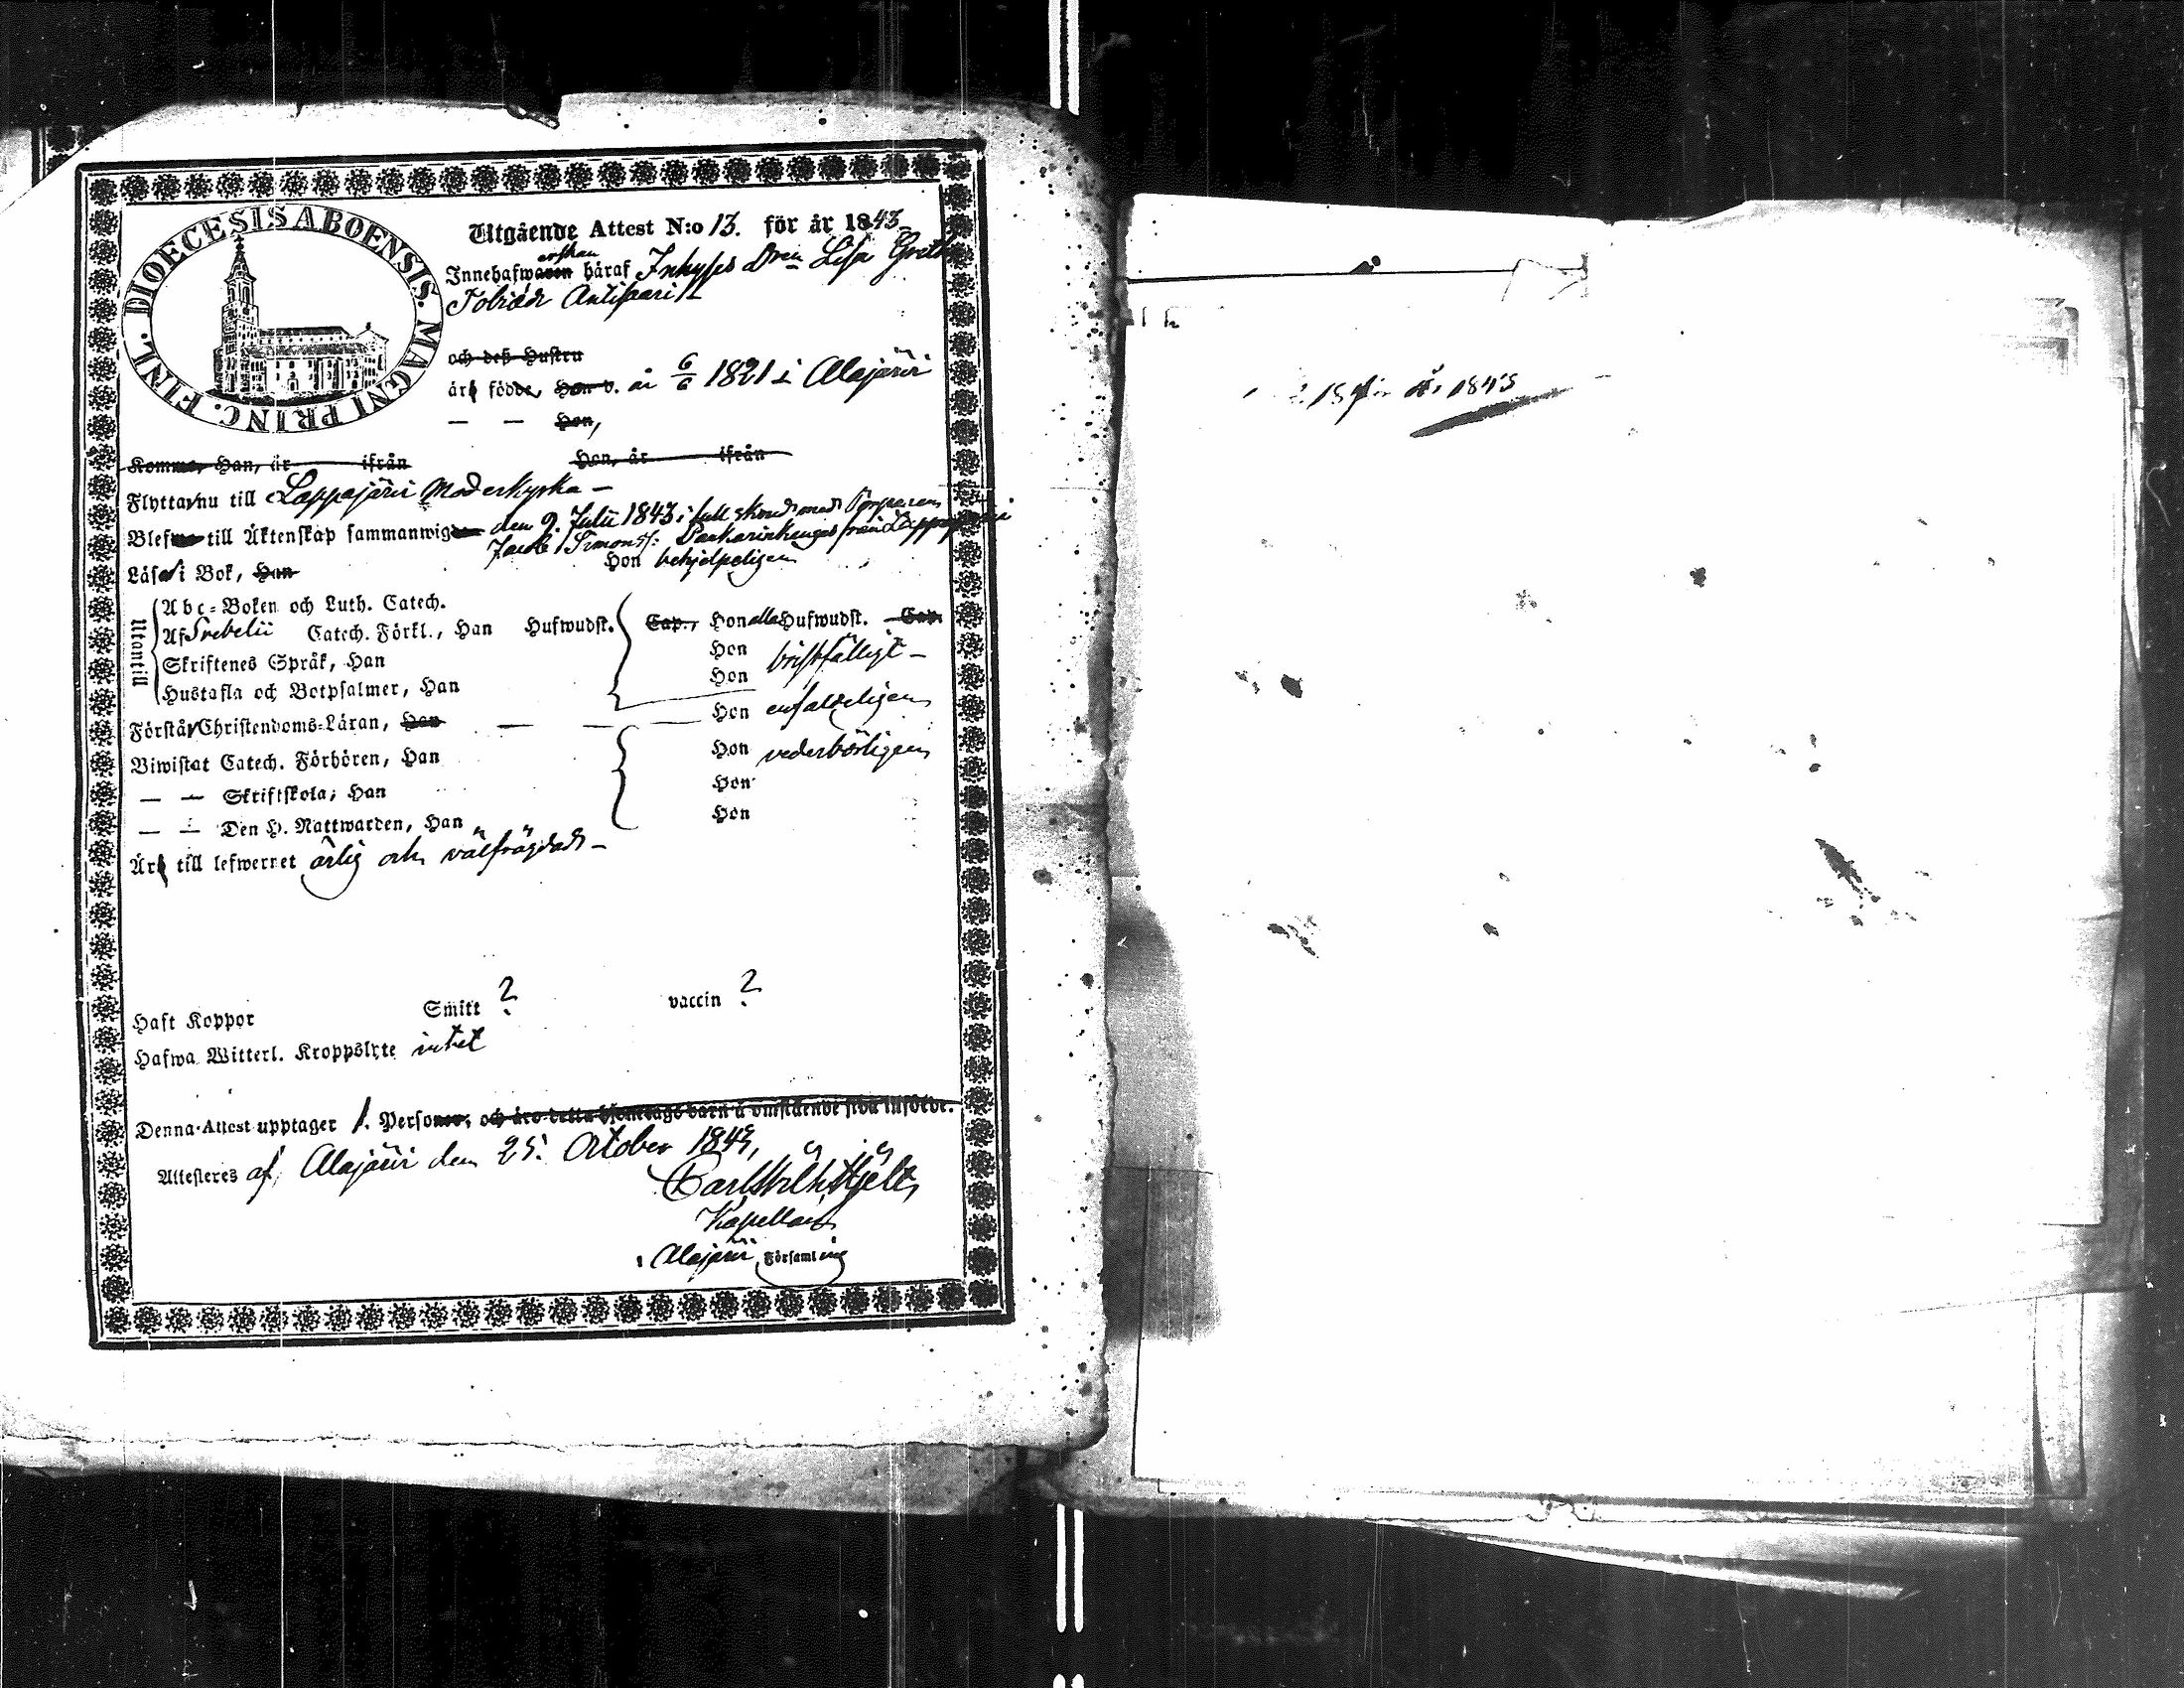 DIOECESIS ABOENSIS. MAGNI PRINC. FINL.
Utgående Attest N:o 13. för år 1843
erskan
Innehafwaren häraf Inhyses Dren Lisa Greta
Tobiædr Antipari
och deß Hustru
äro födde, Han d. är 6/6 1821 i Alajärvi
— — Hon,
Komne, Han, år ifrån Hon, år ifrån
Flytta nu till Lappajärvi Moderkyrka —
Blefwo till Äktenskap sammanwigde den 9. Julii 1843 i full skrud med Torparen
Jacob Simonss: från Lappajärvi
Läsa i Bok, Han Hon behjelpeligen
Utantill
Abc-Boken och Luth. Catech.
Af Svebelii Catech. Förkl., Han Hufwudst. Cap., Hon alla Hufwudst. Cap.
Skriftenes Språk, Han Hon bristfälligt —
Hustafla och Botpsalmer, Han Hon
Förstå Christendoms-Läran, Han — — — Hon enfaldeligen
Biwistat Catech. Förhören, Han Hon vederbörligen
— — Skriftskola, Han Hon
— — Den H. Nattwarden, Han Hon
Äro till lefwernet ärlig och välfrägdad —
Haft Koppor Smitt ? vaccin ?
Hafwa Witterl. Kroppslyte intet
Denna Attest upptager 1. Personer, och äro detta Hjonelags barn å omstående sida införde.
Attesteres af, Alajärvi den 25. October 1843,
Carl Wilh. Hjelt,
Kapellan
i Alajärvi Församling
för år 1843